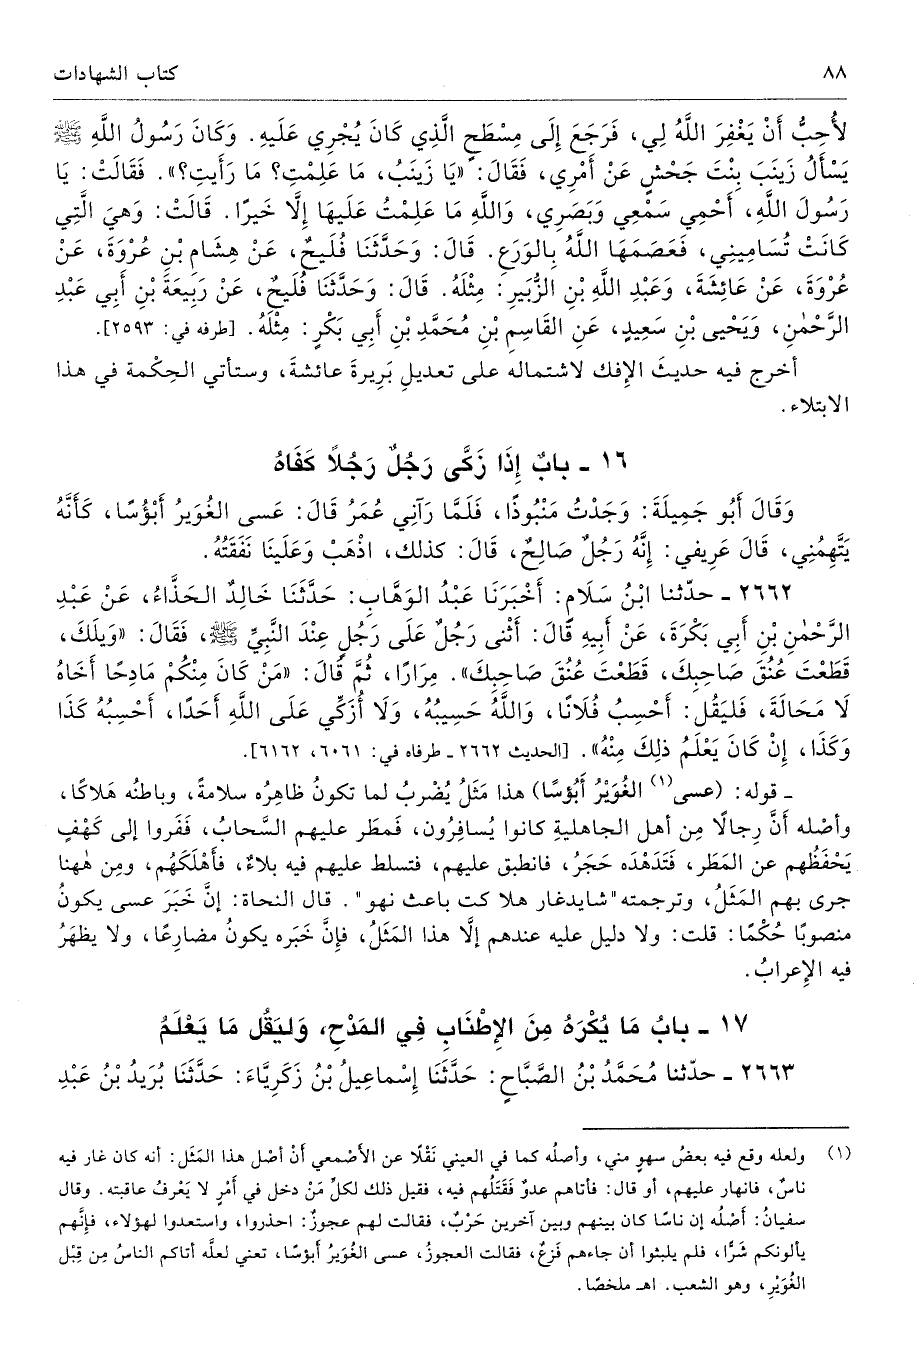 ٨٨ كتاب الشهادات
لأُحِبُّ أَنْ يَغْفِرَ اللَّهُ لِي، فَرَجَعَ إِلَى مِسْطَحٍ الَّذِي كَانَ يُجْرِي عَلَيهِ. وَكَانَ رَسُولُ اللَّهِ ﷺ
يَسْأَلُ زَينَبَ بِنْتَ جَحْشٍ عَنْ أَمْرِي، فَقَالَ: «يَا زَينَبُ، مَا عَلِمْتِ؟ مَا رَأَيتِ؟». فَقَالَتْ: يَا
رَسُولَ اللَّهِ، أَحْمِي سَمْعِي وَبَصَرِي، وَاللَّهِ مَا عَلِمْتُ عَلَيهَا إِلَّا خَيرًا. قَالَتْ: وَهيَ الَّتِي
كَانَتْ تُسَامِينِي، فَعَصَمَهَا اللَّهُ بِالوَرَعِ. قَالَ: وَحَدَّثَنَا فُلَيحٌ، عَنْ هِشَامِ بْنِ عُرْوَةَ، عَنْ
عُرْوَةَ، عَنْ عَائِشَةَ، وَعَبْدِ اللَّهِ بْنِ الزُّبَيرِ: مِثْلَهُ. قَالَ: وَحَدَّثَنَا فُلَيحٌ، عَنْ رَبِيعَةَ بْنِ أَبِي عَبْدِ
الرَّحْمٰنِ، وَيَحْيى بْنِ سَعِيدٍ، عَنِ القَاسِمِ بْنِ مُحَمَّدِ بْنِ أَبِي بَكْرٍ: مِثْلَهُ. [طرفه في: ٢٥٩٣].
أخرج فيه حديثَ الإفك لاشتماله على تعديلِ بَرِيرةَ عائشةَ، وستأتي الحِكْمة في هذا
الابتلاء.
١٦ ـ بابٌ إِذَا زَكَّى رَجُلٌ رَجُلًا كَفَاهُ
وَقَالَ أَبُو جَمِيلَةَ: وَجَدْتُ مَنْبُوذًا، فَلَمَّا رَآنِي عُمَرُ قَالَ: عَسى الغُوَيرُ أَبْؤُسًا، كَأَنَّهُ
يَتَّهِمُنِي، قَالَ عَرِيفي: إِنَّهُ رَجُلٌ صَالِحٌ، قَالَ: كذلك، اذْهَبْ وَعَلَينَا نَفَقَتُهُ.
٢٦٦٢ ـ حدّثنا ابْنُ سَلَامٍ: أَخْبَرَنَا عَبْدُ الوَهَّابِ: حَدَّثَنَا خَالِدٌ الحَذَّاءُ، عَنْ عَبْدِ
الرَّحْمٰنِ بْنِ أَبِي بَكْرَةَ، عَنْ أَبِيهِ قَالَ: أَثْنى رَجُلٌ عَلَى رَجُلٍ عِنْدَ النَّبِيِّ ﷺ، فَقَالَ: «وَيلَكَ،
قَطَعْتَ عُنُقَ صَاحِبِكَ، قَطَعْتَ عُنُقَ صَاحِبِكَ». مِرَارًا، ثُمَّ قَالَ: «مَنْ كَانَ مِنْكُمْ مَادِحًا أَخَاهُ
لَا مَحَالَةَ، فَليَقُل: أَحْسِبُ فُلَانًا، وَاللَّهُ حَسِيبُهُ، وَلَا أُزَكِّي عَلَى اللَّهِ أَحَدًا، أَحْسِبُهُ كَذَا
وَكَذَا، إِنْ كَانَ يَعْلَمُ ذلِكَ مِنْهُ». [الحديث ٢٦٦٢ ـ طرفاه في: ٦٠٦١، ٦١٦٢].
ـ قوله: (عسى(١) الغُوَيْرُ أَبْؤسًا) هذا مَثَلٌ يُضْرِبُ لما تكونُ ظاهِرُه سلامةً، وباطنُه هَلاكًا،
وأصْله أَنَّ رِجالًا مِن أهل الجاهلية كانوا يُسافِرُون، فمطَر عليهم السَّحابُ، فَفَروا إلى كَهْفٍ
يَحْفَظُهم عن المَطَر، فَتَدَهْدَه حَجَرٌ، فانطبق عليهم، فتسلط عليهم فيه بلاءٌ، فأهْلَكَهُم، ومِن ههُنا
جرى بهم المَثَلُ، وترجمته "شايدغار هلا كت باعث نهو". قال النحاة: إنَّ خَبَرَ عسى يكونُ
منصوبًا حُكْمًا: قلت: ولا دليل عليه عندهم إلَّا هذا المَثَلُ، فإِنَّ خَبَره يكونُ مضارِعًا، ولا يظهَرُ
فيه الإعرابُ.
١٧ ـ بابُ مَا يُكْرَهُ مِنَ الإِطْنَابِ فِي المَدْحِ، وَليَقُل مَا يَعْلَمُ
٢٦٦٣ ـ حدّثنا مُحَمَّدُ بْنُ الصَّبَّاحِ: حَدَّثَنَا إِسْماعِيلُ بْنُ زَكَرِيَّاءَ: حَدَّثَنَا بُرَيدُ بْنُ عَبْدِ
(١) ولعله وقع فيه بعضُ سهوٍ مني، وأصلُه كما في العيني نَقْلًا عن الأصْمعي أنْ أصْل هذا المَثَل: أنه كان غار فيه
ناسٌ، فانهار عليهم، أو قال: فأتاهم عدوٌ فَقَتَلُهم فيه، فقيل ذلك لكلِّ مَنْ دخل في أَمْرٍ لا يَعْرفُ عاقبته. وقال
سفيانُ: أصْلُه إن ناسًا كان بينهم وبين آخرين حَرْبٌ، فقالت لهم عجوزٌ: احذروا، واستعدوا لهؤلاء، فإِنَّهم
يألونكم شرًّا، فلم يلبثوا أن جاءهم فَزِعٌ، فقالت العجوزُ، عسى الغُوَيرُ أبؤسًا، تعني لعلَّه أتاكم الناسُ مِن قِبَل
الغُوَيْرِ، وهو الشعب. اهـ ملخصًا.